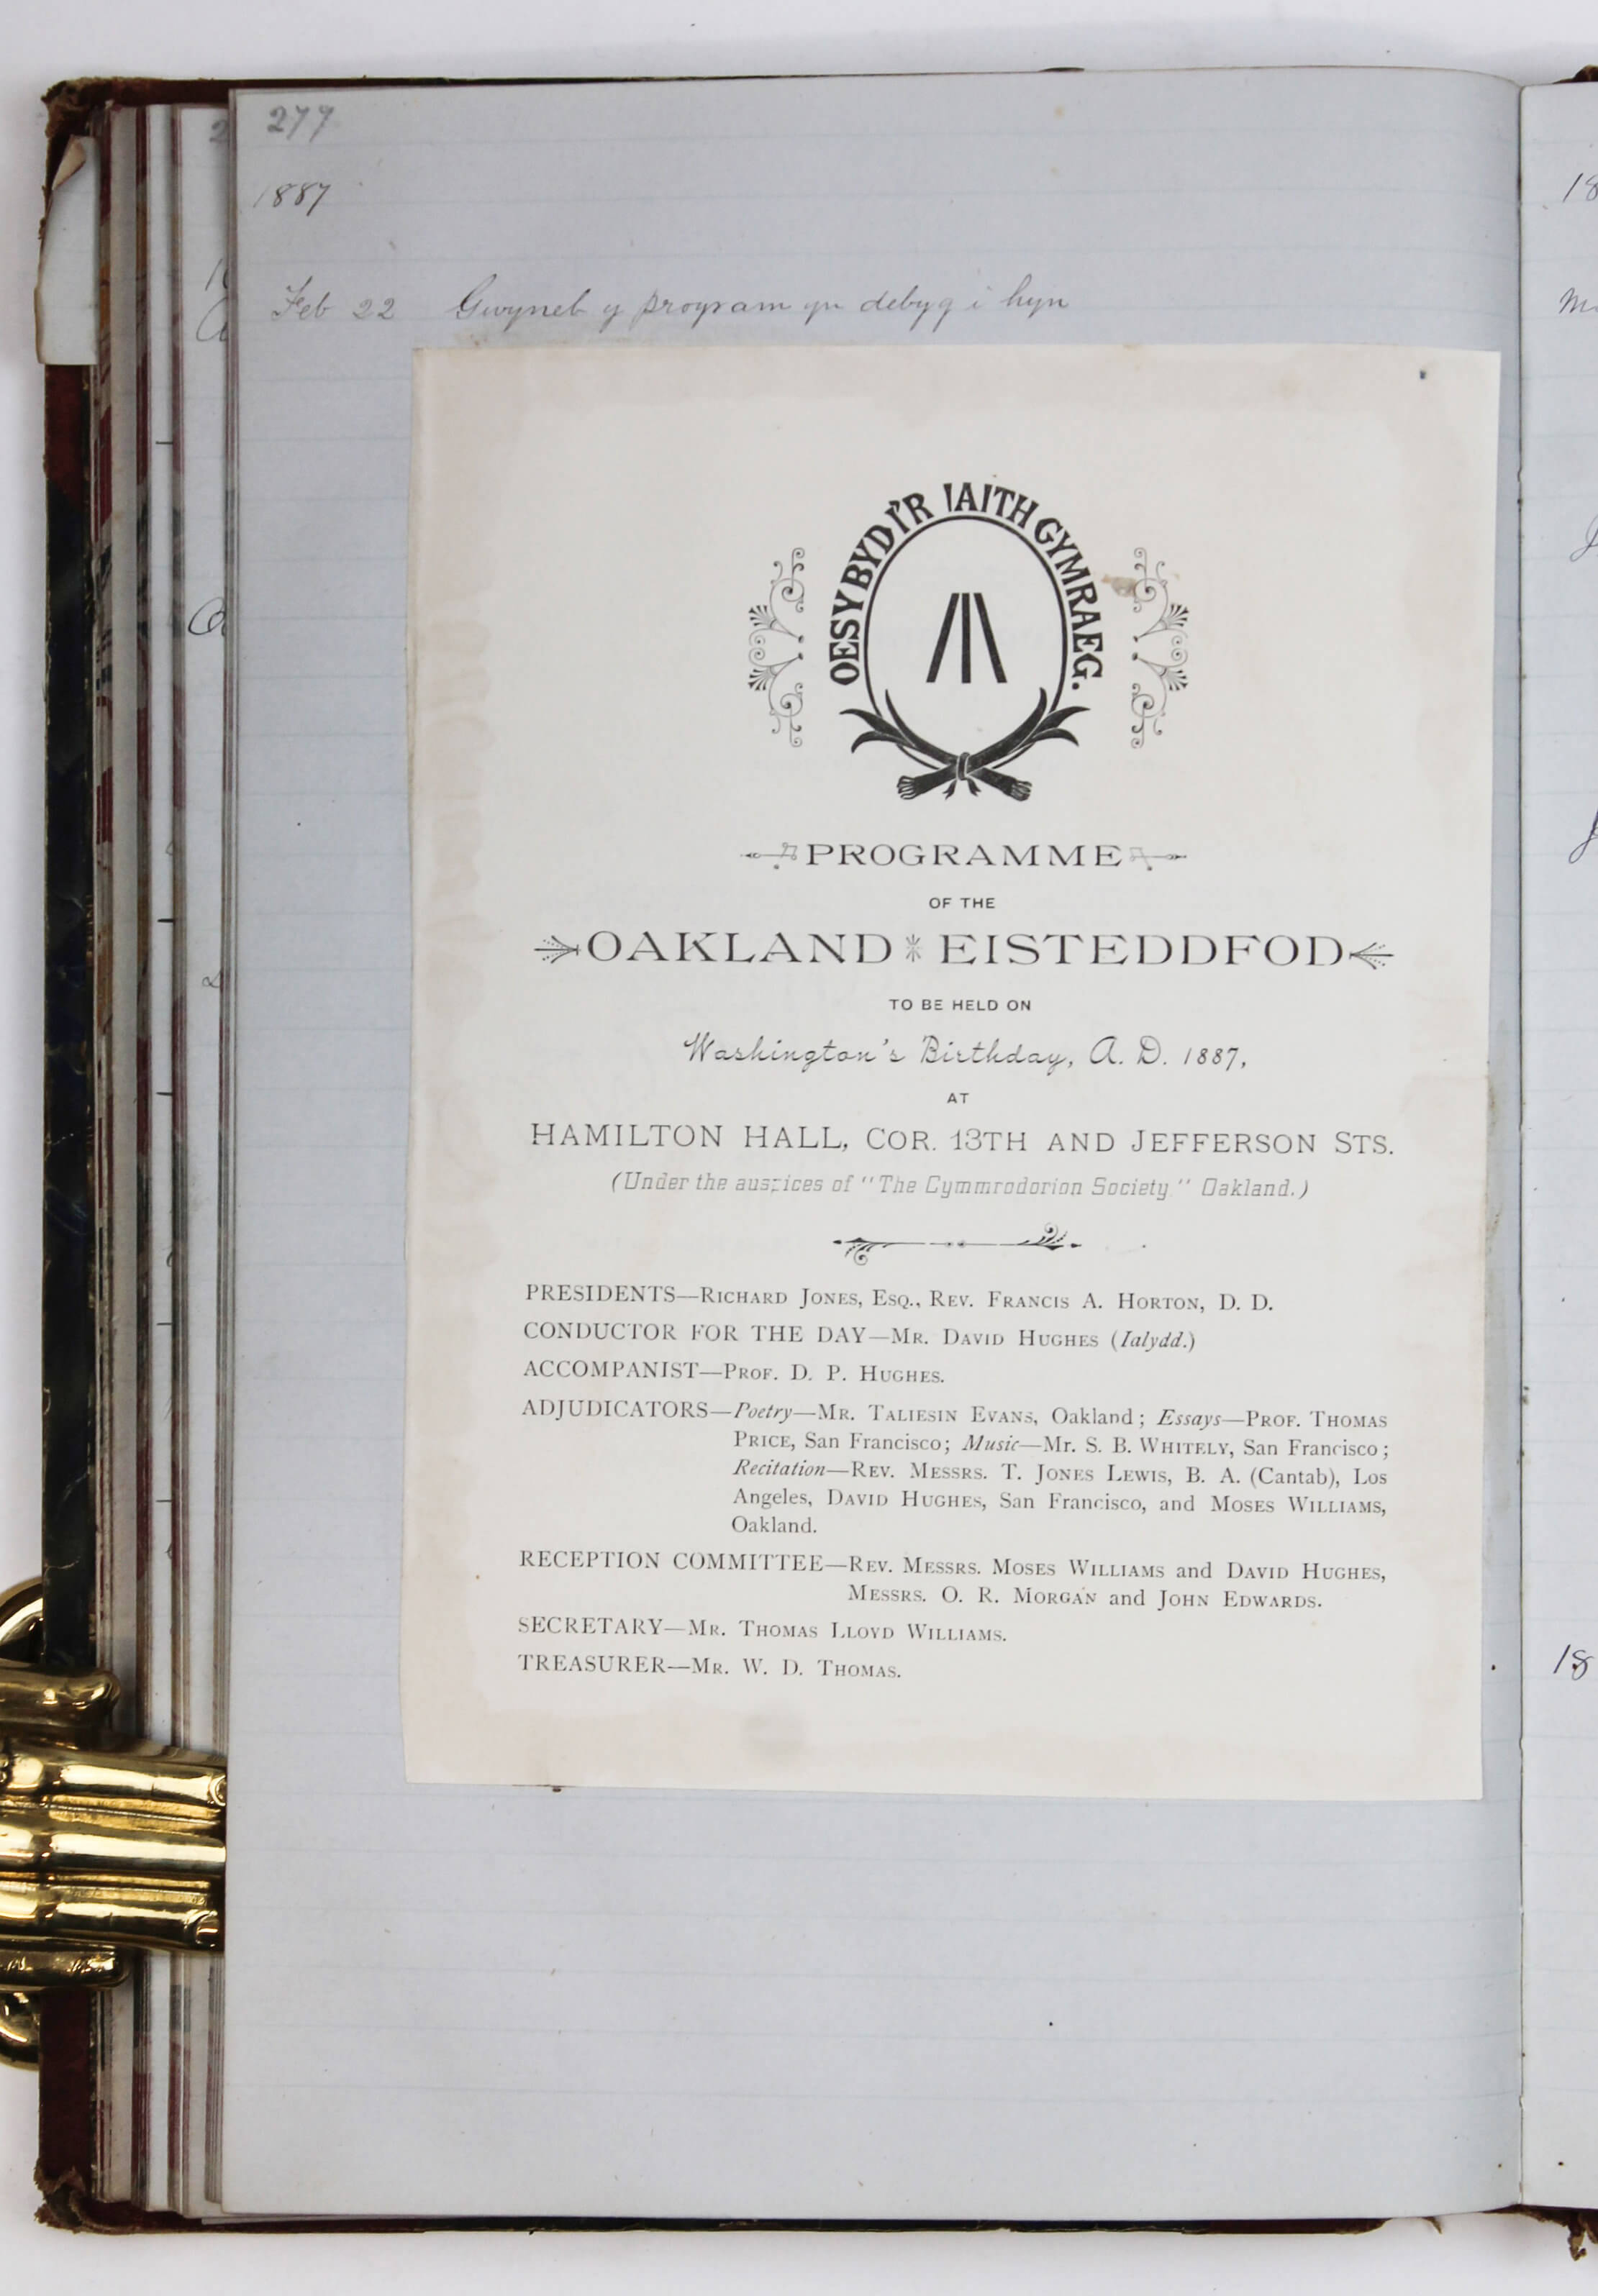 277
1887
Feb 22 Gwyneb y program yn debyg i hyn
OES Y BYD I'R IAITH GYMRAEG.
PROGRAMME
OF THE
OAKLAND EISTEDDFOD
TO BE HELD ON
Washington's Birthday, A. D. 1887,
AT
HAMILTON HALL, COR. 13TH AND JEFFERSON STS.
(Under the auspices of "The Cymmrodorion Society" Oakland.)
PRESIDENTS—RICHARD JONES, ESQ., REV. FRANCIS A. HORTON, D. D.
CONDUCTOR FOR THE DAY—MR. DAVID HUGHES (Ialydd.)
ACCOMPANIST—PROF. D. P. HUGHES.
ADJUDICATORS—Poetry—MR. TALIESIN EVANS, Oakland; Essays—PROF. THOMAS
PRICE, San Francisco; Music—Mr. S. B. WHITELY, San Francisco;
Recitation—REV. MESSRS. T. JONES LEWIS, B. A. (Cantab), Los
Angeles, DAVID HUGHES, San Francisco, and MOSES WILLIAMS,
Oakland.
RECEPTION COMMITTEE—REV. MESSRS. MOSES WILLIAMS and DAVID HUGHES,
MESSRS. O. R. MORGAN and JOHN EDWARDS.
SECRETARY—MR. THOMAS LLOYD WILLIAMS.
TREASURER—MR. W. D. THOMAS.